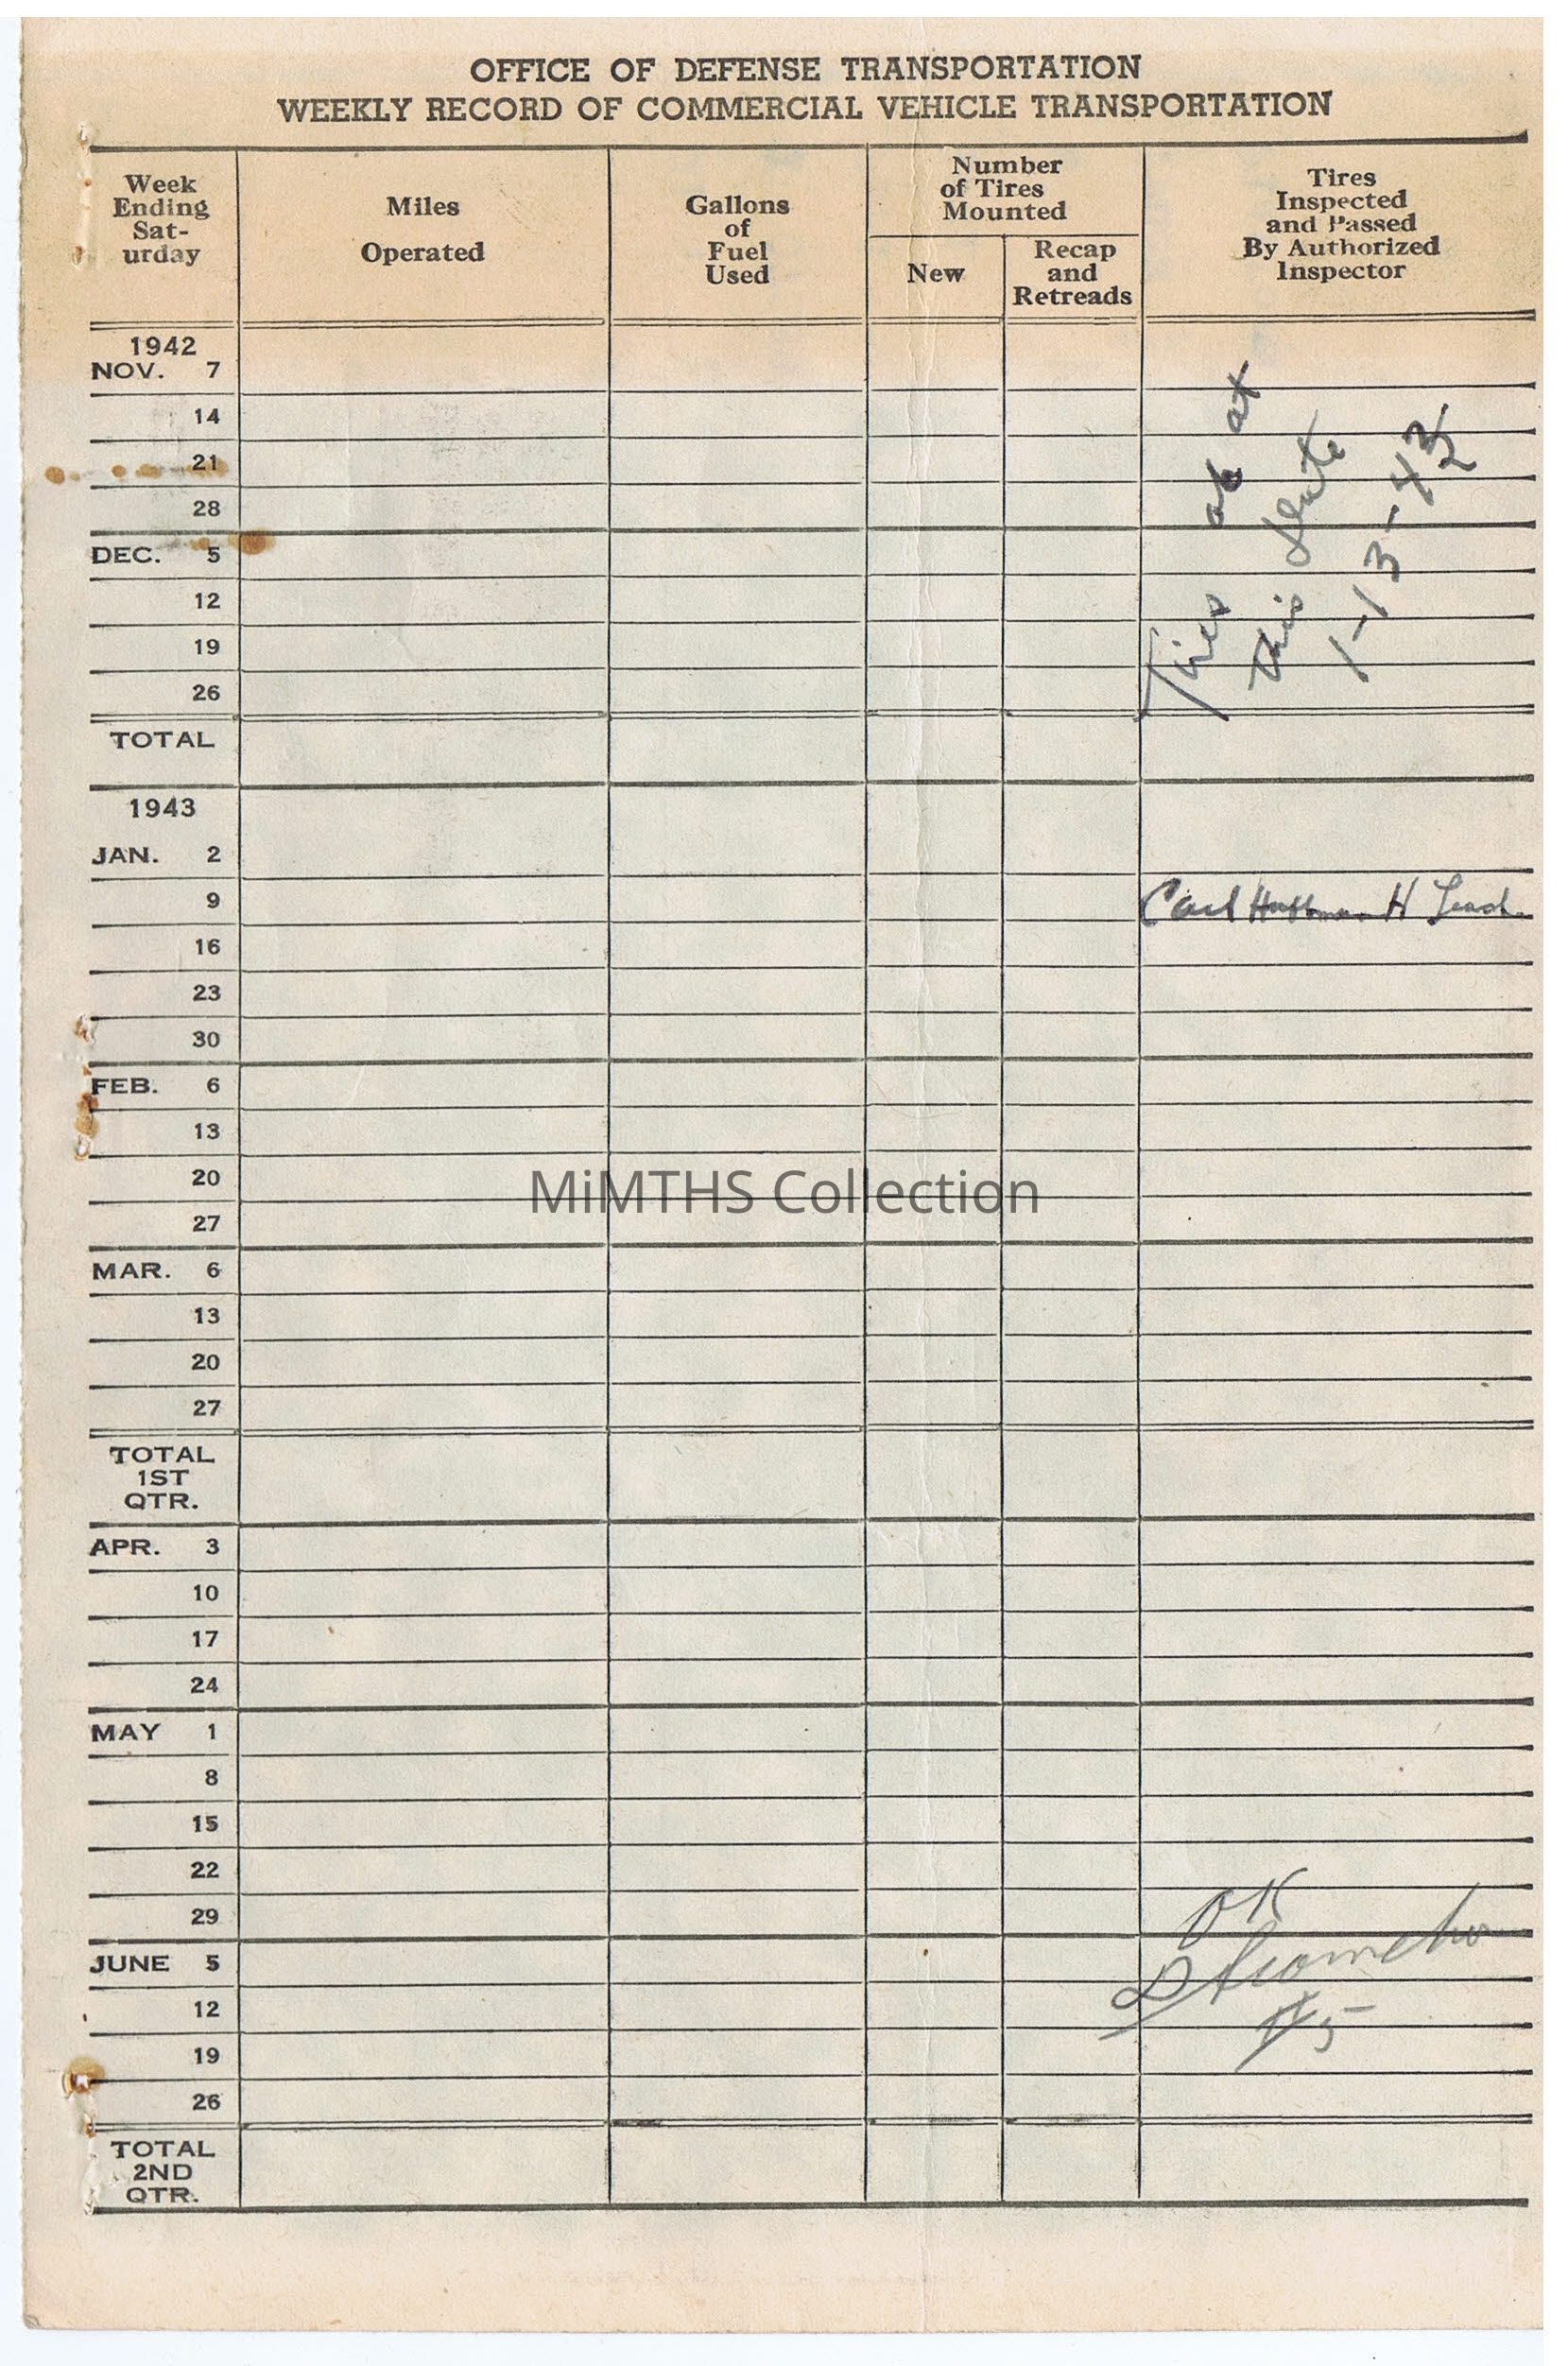 OFFICE OF DEFENSE TRANSPORTATION
WEEKLY RECORD OF COMMERCIAL VEHICLE TRANSPORTATION
Week
Ending
Sat-
urday
Miles
Operated
Gallons
of
Fuel
Used
Number
of Tires
Mounted
New
Recap
and
Retreads
Tires
Inspected
and Passed
By Authorized
Inspector
1942
NOV. 7
14
21
28
DEC. 5
12
19
26
Tires ok at
this date
1-13-43
TOTAL
1943
JAN. 2
9
Carl H
16
23
30
FEB. 6
13
20
27
MiMTHS Collection
MAR. 6
13
20
27
TOTAL
1ST
QTR.
APR. 3
10
17
24
MAY 1
8
15
22
29
OK
JUNE 5
12
19
26
TOTAL
2ND
QTR.